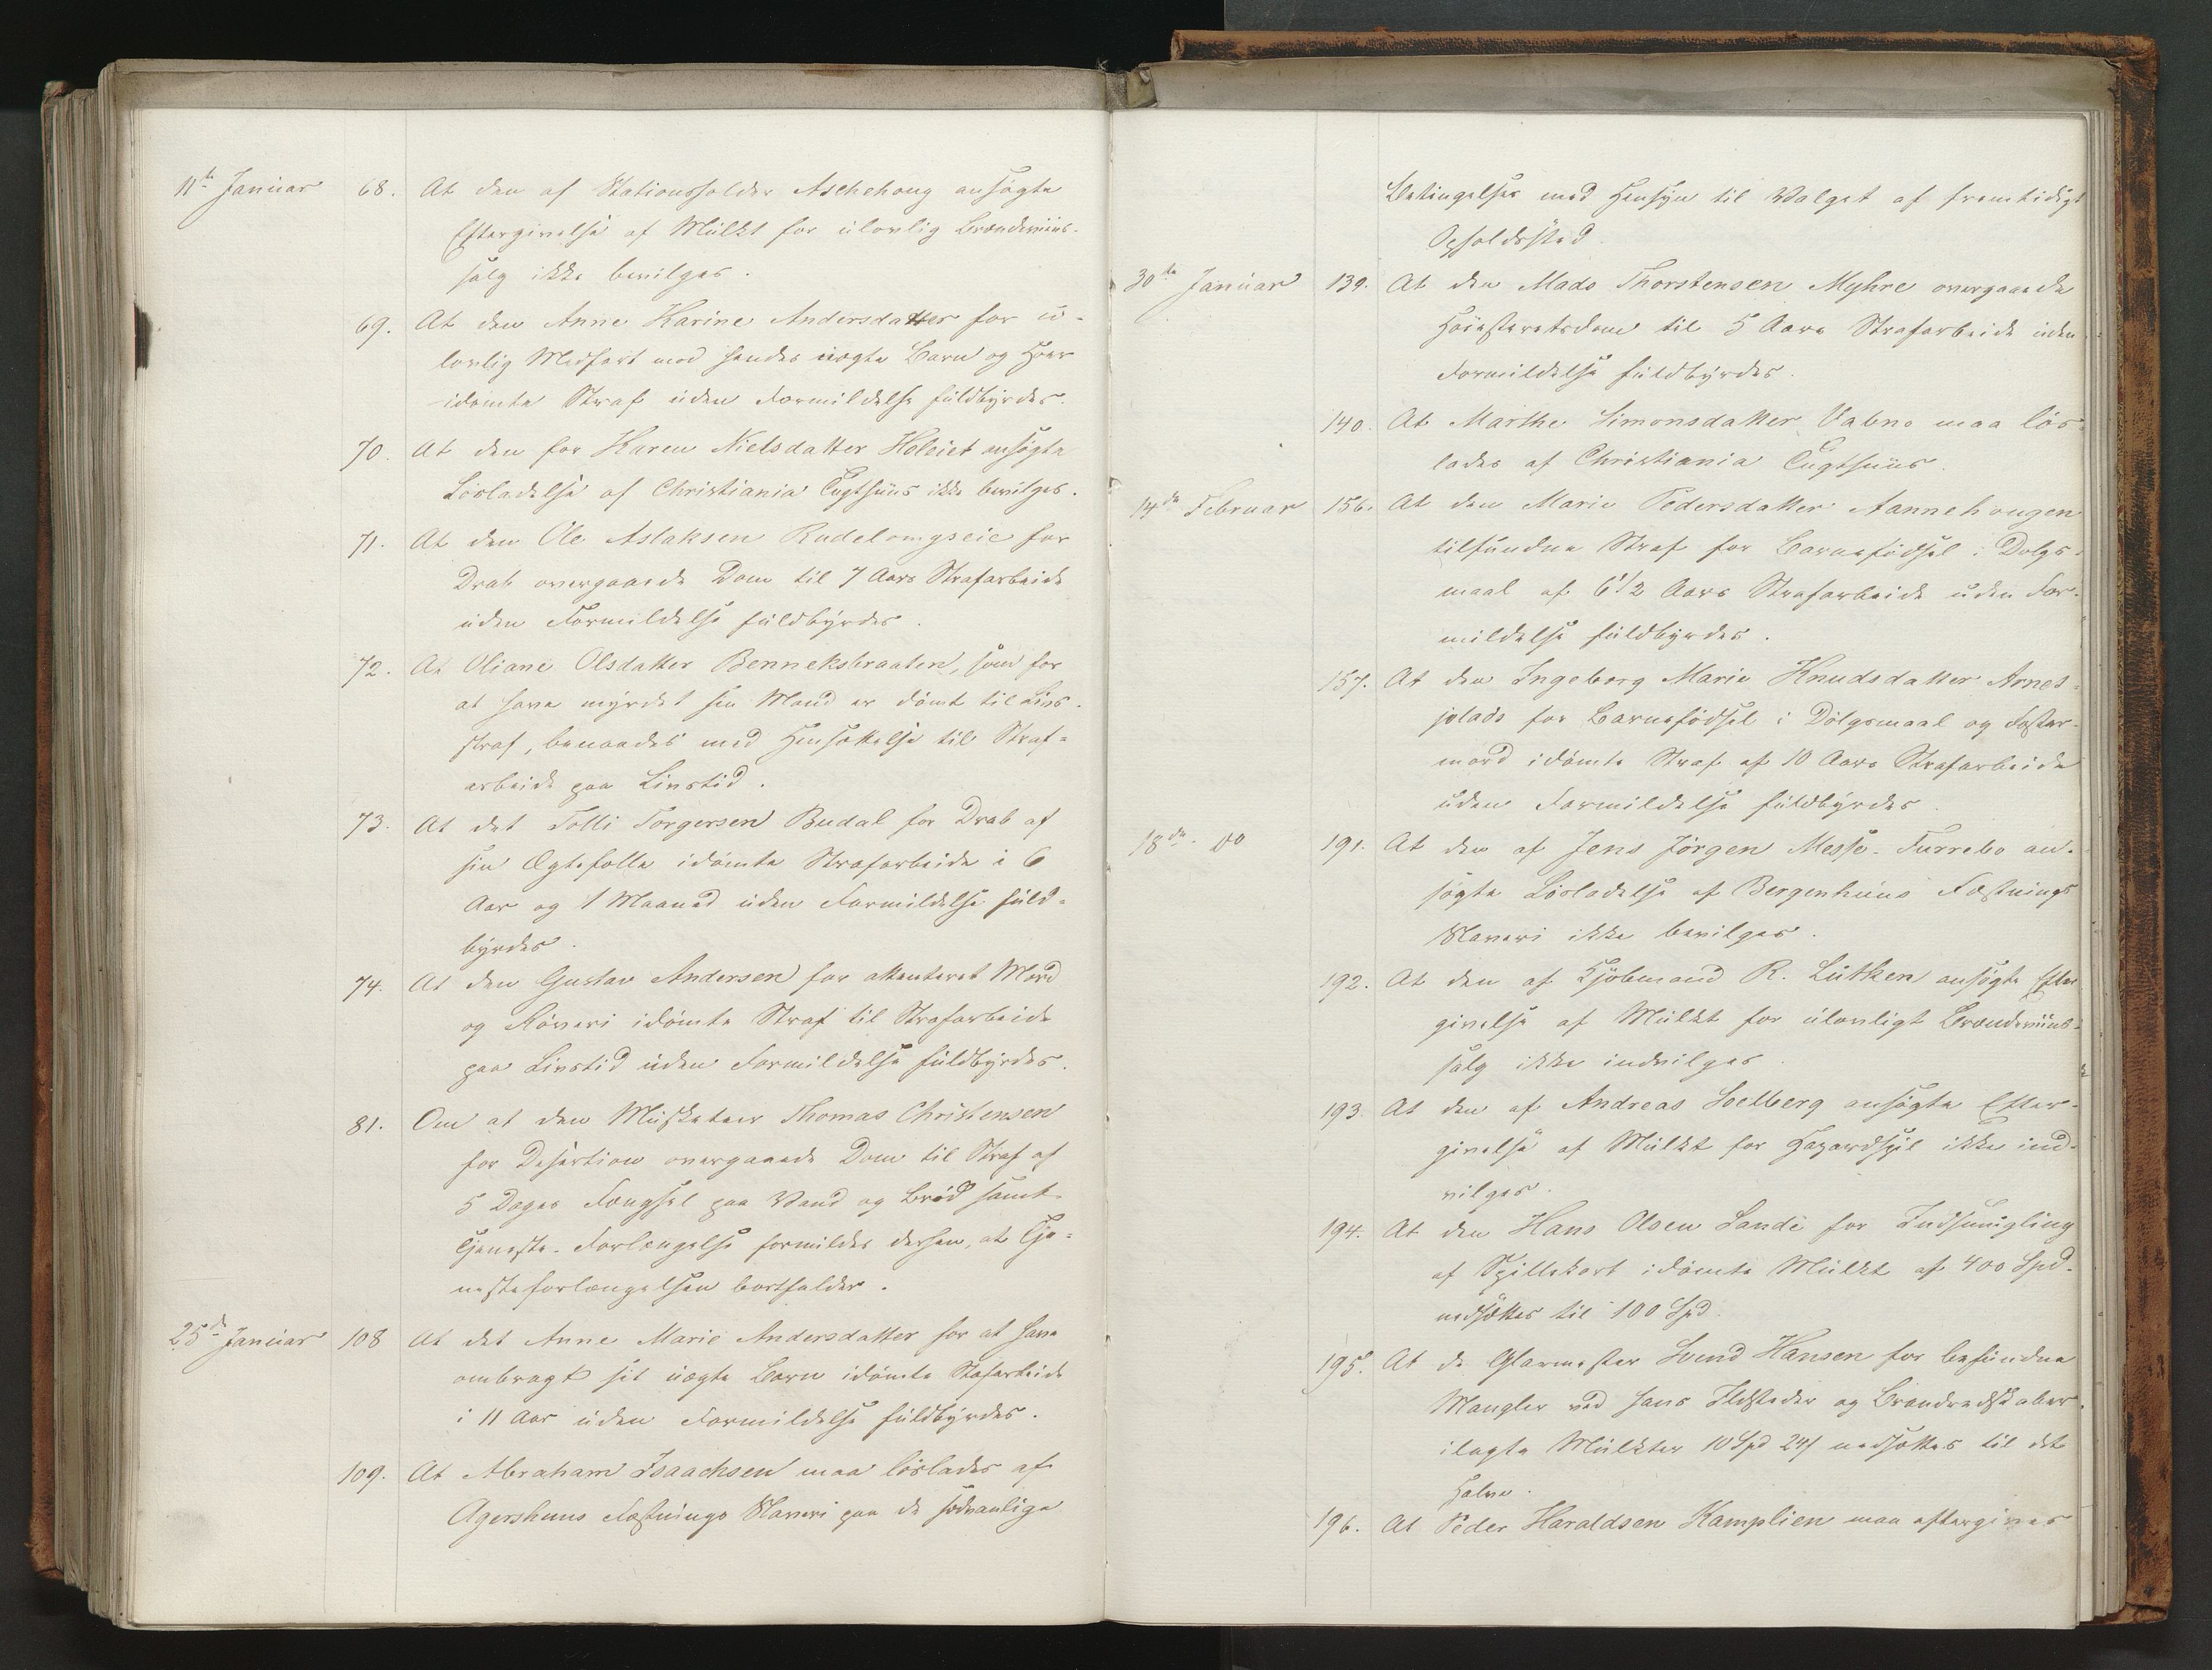 11te Januar 68. At den af Stationsholder Aschehoug ansøgte
Eftergivelse af Mulkt for ulovlig Brændeviins-
salg ikke bevilges.
69. At den Anne Karine Andersdatter for u-
lovlig Medfart mod hendes uægte Barn og Hoer
idømte Straf uden Formildelse fuldbyrdes.
70. At den for Karen Nielsdatter Holeiet ansøgte
Løsladelse af Christiania Tugthuus ikke bevilges.
71. At den Ole Aslaksen Rudelongseie for
Drab overgaaede Dom til 7 Aars Strafarbeide
uden Formildelse fuldbyrdes.
72. At Oliane Olsdatter Benneksbraaten, som for
at have myrdet sin Mand er dømt til Livs-
straf, benaades med Hensættelse til Straf=
arbeide paa Livstid.
73. At det Tolli Torgersen Budal for Drab af
sin Ægtefælle idømte Strafarbeide i 6
Aar og 1 Maaned uden Formildelse fuld=
byrdes.
74. At den Gustav Andersen for attenteret Mord
og Røveri idømte Straf til Strafarbeide
paa Livstid uden Formildelse fuldbyrdes.
81. Om at den Musketeer Thomas Christensen
for Desertion overgaaede Dom til Straf af
5 Dages Fængsel paa Vand og Brød samt
Tjeneste-Forlængelse formildes derhen, at Tje=
nesteforlængelsen bortfalder.
25de Januar 108 At det Anne Marie Andersdatter for at have
ombragt sit uægte Barn idømte Stafarbeide
i 11 Aar uden Formildelse fuldbyrdes.
109. At Abraham Isaachsen maa løslades af
Agershuus Fæstnings Slaveri paa de sædvanlige
Betingelser med Hensyn til Valget af fremtidigt
Opholdssted.
30te Januar 139. At den Mads Thorstensen Myhre overgaaede
Høiesteretsdom til 5 Aars Strafarbeide uden
Formildelse fuldbyrdes.
140. At Marthe Simonsdatter Vabno maa løs-
lades af Christiania Tugthuus.
14de Februar 156. At den Marie Pedersdatter Aannehougen
tilfundne Straf for Barnefødsel i Dølgs-
maal af 6 1/2 Aars Strafarbeide uden For-
mildelse fuldbyrdes.
157. At den Ingeborg Marie Knudsdatter Arnet-
jolads for Barnefødsel i Dølgsmaal og Foster-
mord idømte Straf af 10 Aars Strafarbeide
uden Formildelse fuldbyrdes.
18de do 191. At den af Jens Jörgen Messe-Furrebo an-
søgte Løsladelse af Bergenhuus Fæstnings
Slaveri ikke bevilges.
192. At den af Kjøbmand R. Lütken ansøgte Efter
givelse af Mulkt for ulovligt Brændeviins-
salg ikke indvilges.
193. At den af Andreas Soelberg ansøgte Efter-
givelse af Mulkt for Hazardspil ikke ind-
vilges.
194. At den Hans Olsen Sande for Indsmugling
af Spillekort idømte Mulkt af 400 Spd.
nedsættes til 100 Spd.
195. At de Glarmester Svend Hansen for befundne
Mangler ved hans Ildsteder og Brandredskaber
ilagte Mulkter 10 Spd 24 s nedsættes til det
Halve.
196. At Peder Haraldsen Kamplien maa eftergives